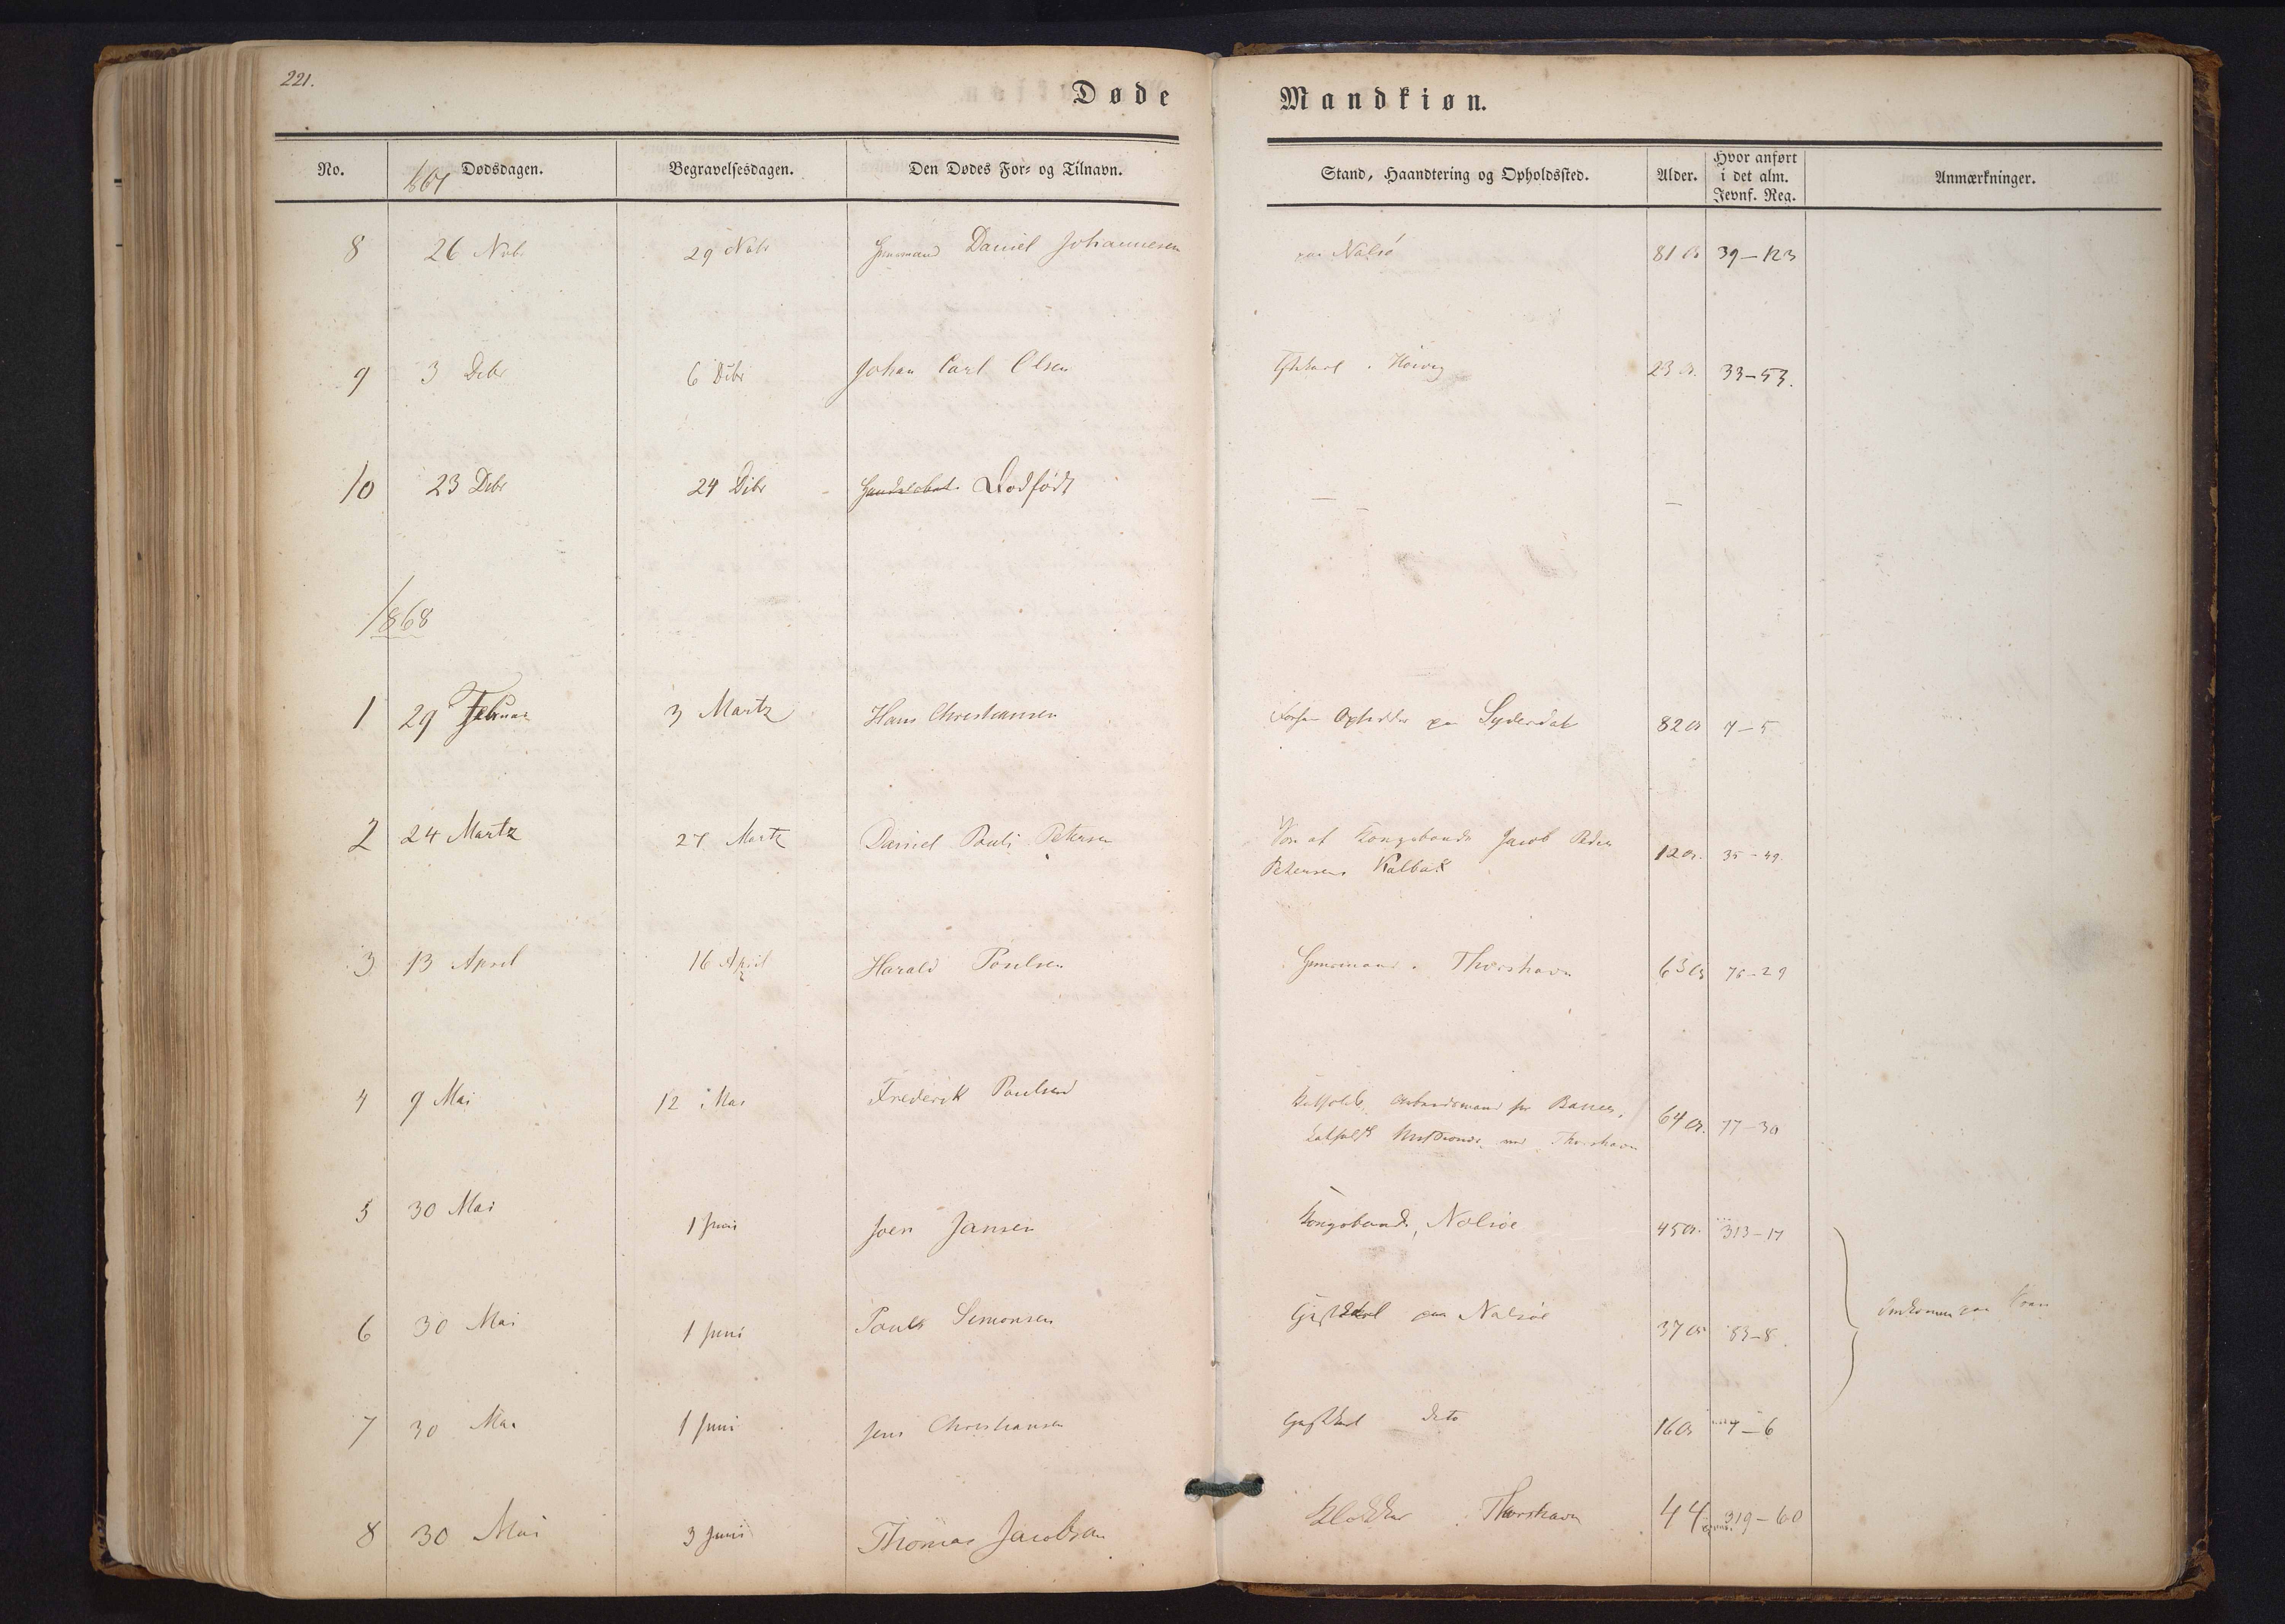 221.
Døde Mandkiøn.
No. Dødsdagen. Begravelsesdagen. Den Dødes For- og Tilnavn. Stand, Haandtering og Opholdssted. Alder. Hvor anført i det alm. Jevnf. Reg. Anmærkninger.
8 26 Nvbr 29 Nvbr Daniel Johannesen paa Nolsø 81 39-123
9 3 Debr 6 Debr Johan Carl Olsen Hoivig 23 33-53.
10 23 Debr 24 Debr Dødfødt — —
1868
1 29 Februar 3 Martz Hans Christiansen paa Syderdal 82 7-5
2 24 Martz 27 Martz Daniel Pauli Petersen Søn af Kongsbonde Jacob Peder
Petersen. Kalbak 12 35-49.
3 13 April 16 April Harald Poulsen Thorshavn 63 76-29
4 9 Mai 12 Mai Frederik Poulsen Arbeidsmand
Thorshavn 64 77-30
5 30 Mai 1 Juni Joen Jansen Kongsbonde, Nolsøe 45 313-17
6 30 Mai 1 Juni Poul Simonsen paa Nolsøe 37 83-8. Omkomne paa
7 30 Mai 1 Juni Jens Christiansen dito 16 7-6
8 30 Mai 3 Juni Thomas Jacobsen Klokker Thorshavn 44 319-60